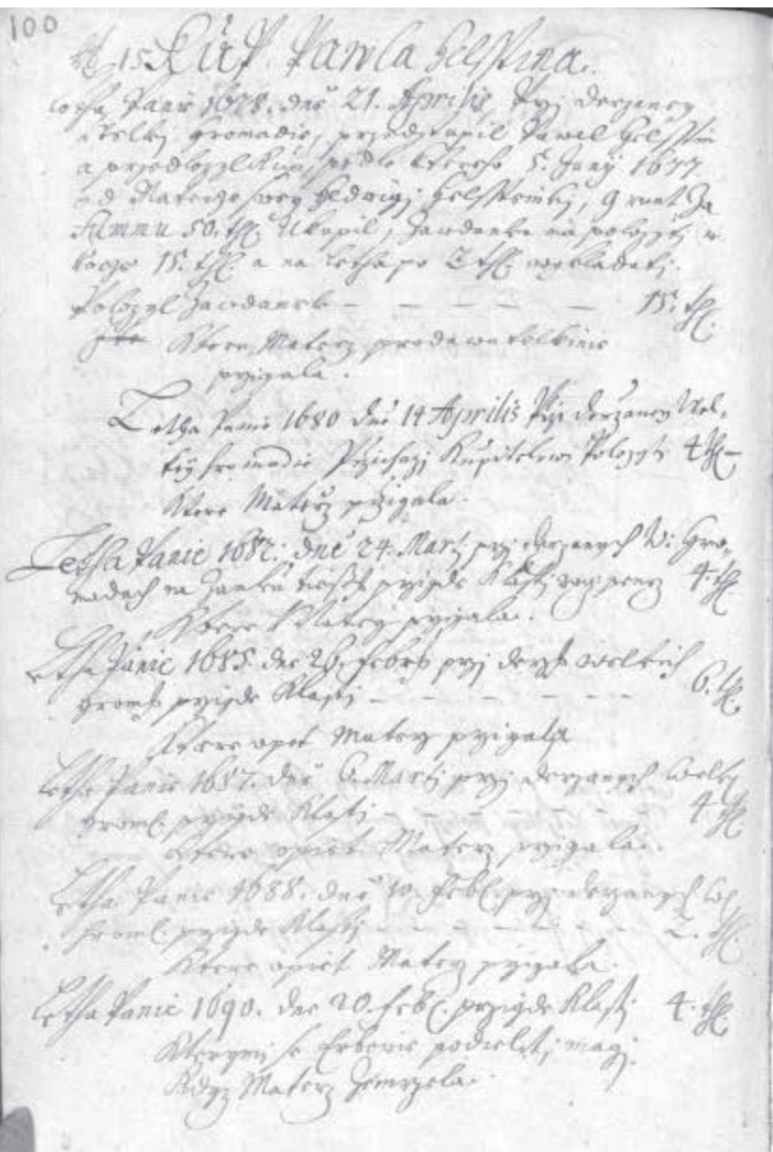 100
15 Kup Pawla Gelsstina.
Letha Panie 1678. dne 21. Aprilis, Przi drzaney
welky gromadie, przedstupil Pawel Gelsstin
a przedlozyl Kup, podle ktereho 5. Juny 1677
od Materze swey Hedwigi Gelsstinki, grunt za
Summu 50. tl. Ukupil, zawdanku na polozyti
15. tl. a na letha po 2 tl. wykladati.
Polozyl zawdanek — — — — — 15. tl.
Ktere Materz prodawatelkine
przigala.
Letha Panie 1680 dne 14 Aprilis Przi drzaney Wel-
key hromadie Przichazi Kupitelowi Polozyti 4 tl
Ktere Materz przigala.
Letha Panie 1682. dne 24. Marti przi drzanych W. Gro-
madach na Zamku przigde Klasti 4. tl
Ktere Materz przigala.
Letha Panie 1685. dne 26. febr. przi drz. welkich
grom. przigde Klasti — — — — 6. tl.
Ktere opet Materz przigala
Letha Panie 1687. dne 6. Marti przi drzanych Welk.
grom. przigde Klasti — — — — 4. tl
Ktere opiet Materz przigala.
Letha Panie 1688. dne 10. febr. przi drzanych
hrom. przigde Klasti — — — — 2. tl.
Ktere opiet Materz przigala.
Letha Panie 1690. dne 20. feb. przigde Klasti 4. tl.
Kterymi se Erbowe podieliti magi
Kdyz Materz Zemrzela.